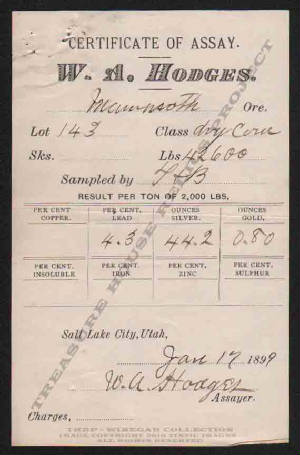 CERTIFICATE OF ASSAY.
W. A. HODGES.
Mammoth Ore.
Lot 143 Class dry Conc
Sks. Lbs 42600
Sampled by T & B
RESULT PER TON OF 2,000 LBS,
PER CENT. COPPER. PER CENT. LEAD OUNCES SILVER. OUNCES GOLD,
4.3 44.2 0.80
PER CENT. INSOLUBLE PER CENT. IRON PER CENT. ZINC PER CENT. SULPHUR
Salt Lake City, Utah,
Jan 17 1899
W. A. Hodges
Assayer.
Charges,
TREASURE HOUSE RELICS PROJECT
THRP - WINEGAR COLLECTION
IMAGE COPYRIGHT 2010 TINTIC IMAGES
ALL RIGHTS RESERVED